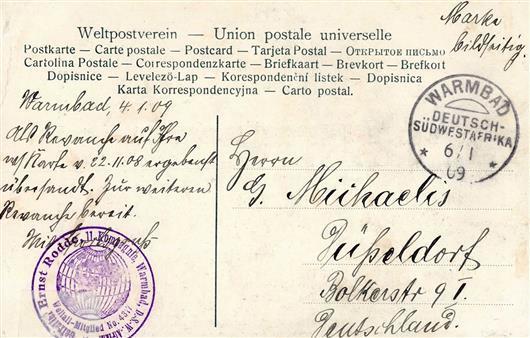 Weltpostverein — Union postale universelle
Postkarte – Carte postale – Postcard – Tarjeta Postal – Открытое письмо
Cartolina Postale – Correspondenzkarte – Briefkaart – Brevkort – Brefkort
Dopisnice – Levelező-Lap – Korespondenční listek – Dopisnica
Karta Korrespondencyjna – Carto postal.
Marke
bildseitig.
Warmbad, 4.1.09
Als Revanche auf Ihre
w/Karte v. 22-11-08 ergebenst
übersandt. Zur weiteren
Revanche bereit.
WARMBAD
DEUTSCH-
SÜDWESTAFRIKA
6/1
09
Herrn
G. Michaelis
Düsseldorf
Bolkerstr 91.
Deutschland.
Ernst Rodde, 11. Kompagnie, Warmbad, D.S.W.
Weltall-Mitglied No.